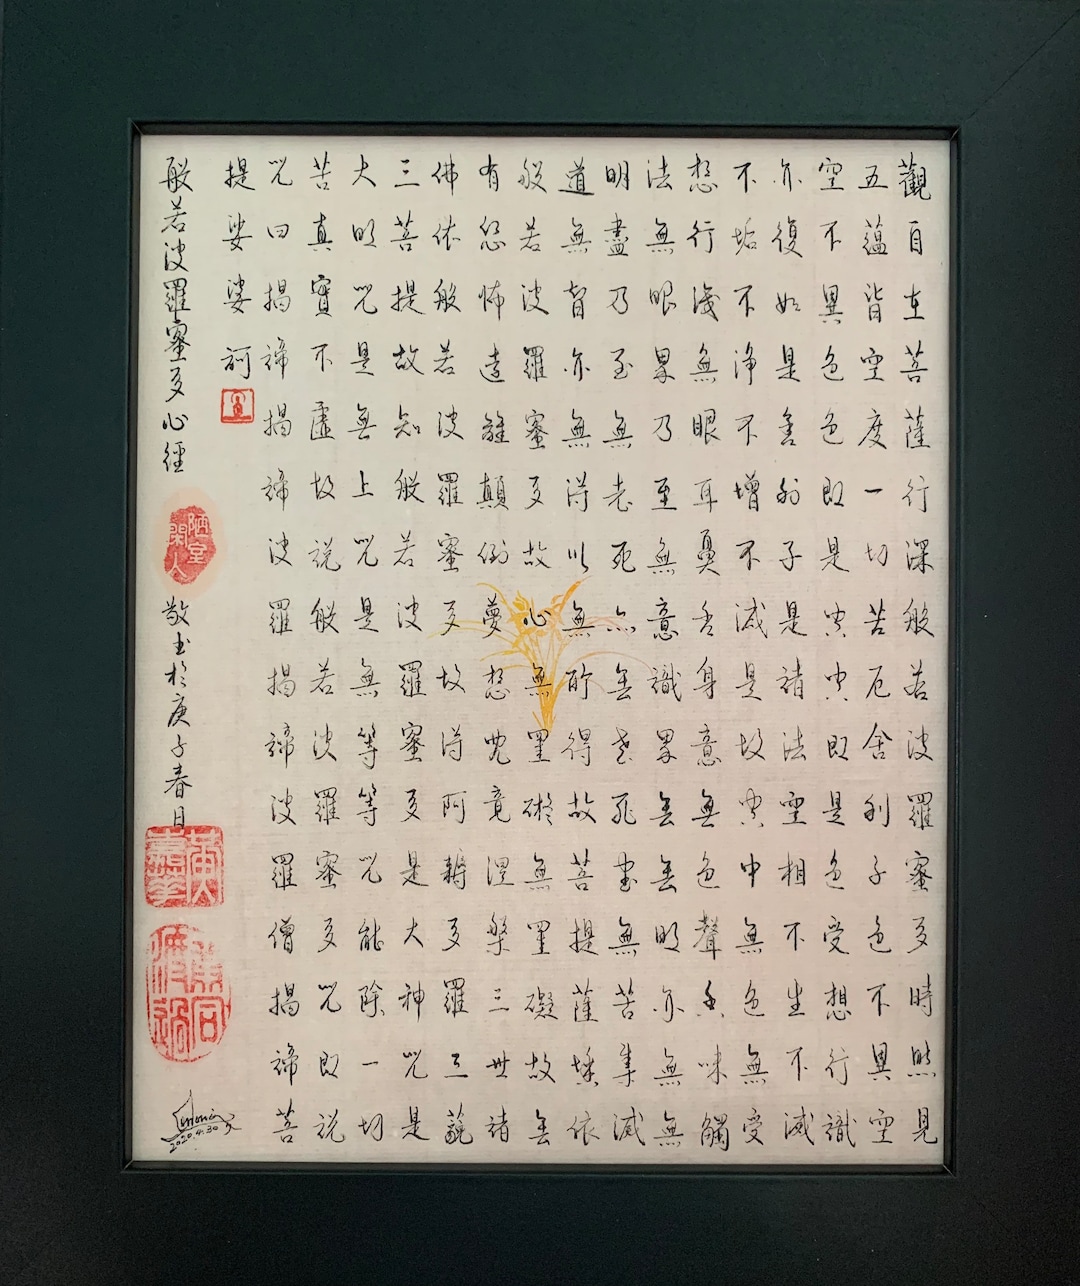 觀自在菩薩行深般若波羅蜜多時照見
五蘊皆空度一切苦厄舍利子色不異空
空不異色色即是空空即是色受想行識
亦復如是舍利子是諸法空相不生不滅
不垢不淨不增不減是故空中無色無受
想行識無眼耳鼻舌身意無色聲香味觸
法無眼界乃至無意識界無無明亦無無
明盡乃至無老死亦無老死盡無苦集滅
道無智亦無得以無所得故菩提薩埵依
般若波羅蜜多故心無罣礙無罣礙故無
有恐怖遠離顛倒夢想究竟涅槃三世諸
佛依般若波羅蜜多故得阿耨多羅三藐
三菩提故知般若波羅蜜多是大神咒是
大明咒是無上咒是無等等咒能除一切
苦真實不虛故說般若波羅蜜多咒即說
咒曰揭諦揭諦波羅揭諦波羅僧揭諦菩
提娑婆訶
般若波羅蜜多心經
陋室閑人
敬书於庚子春日
2020.4.30